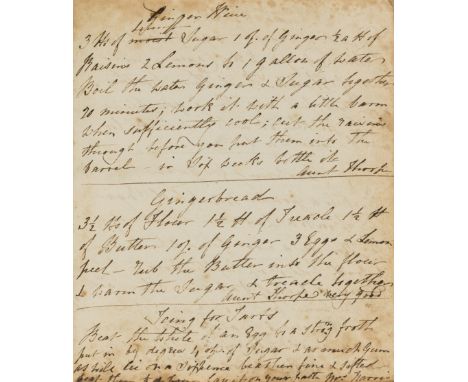 Ginger Wine
3 lbs of moist Sugar 1 oz. of Ginger ½ a lb of
Raisins 2 Lemons to 1 gallon of water
Boil the water Ginger & Sugar together
20 minutes; work it with a little barm
when sufficiently cool; cut the raisins
through before you put them into the
barrel - in Six weeks bottle it
Aunt Thorp
Gingerbread
3½ lbs of Flour 1½ lb of Treacle 1½ lb
of Butter 1 oz. of Ginger 3 Eggs & Lemon
peel - Rub the Butter into the flour
& warm the Sugar & treacle together
Aunt Thorpe very good
Icing for Tarts
Beat the white of an Egg to a strong froth
put in by degrees 4 oz. of Sugar & as much Gum
as will lie on a Sixpence beaten fine & sifted
beat